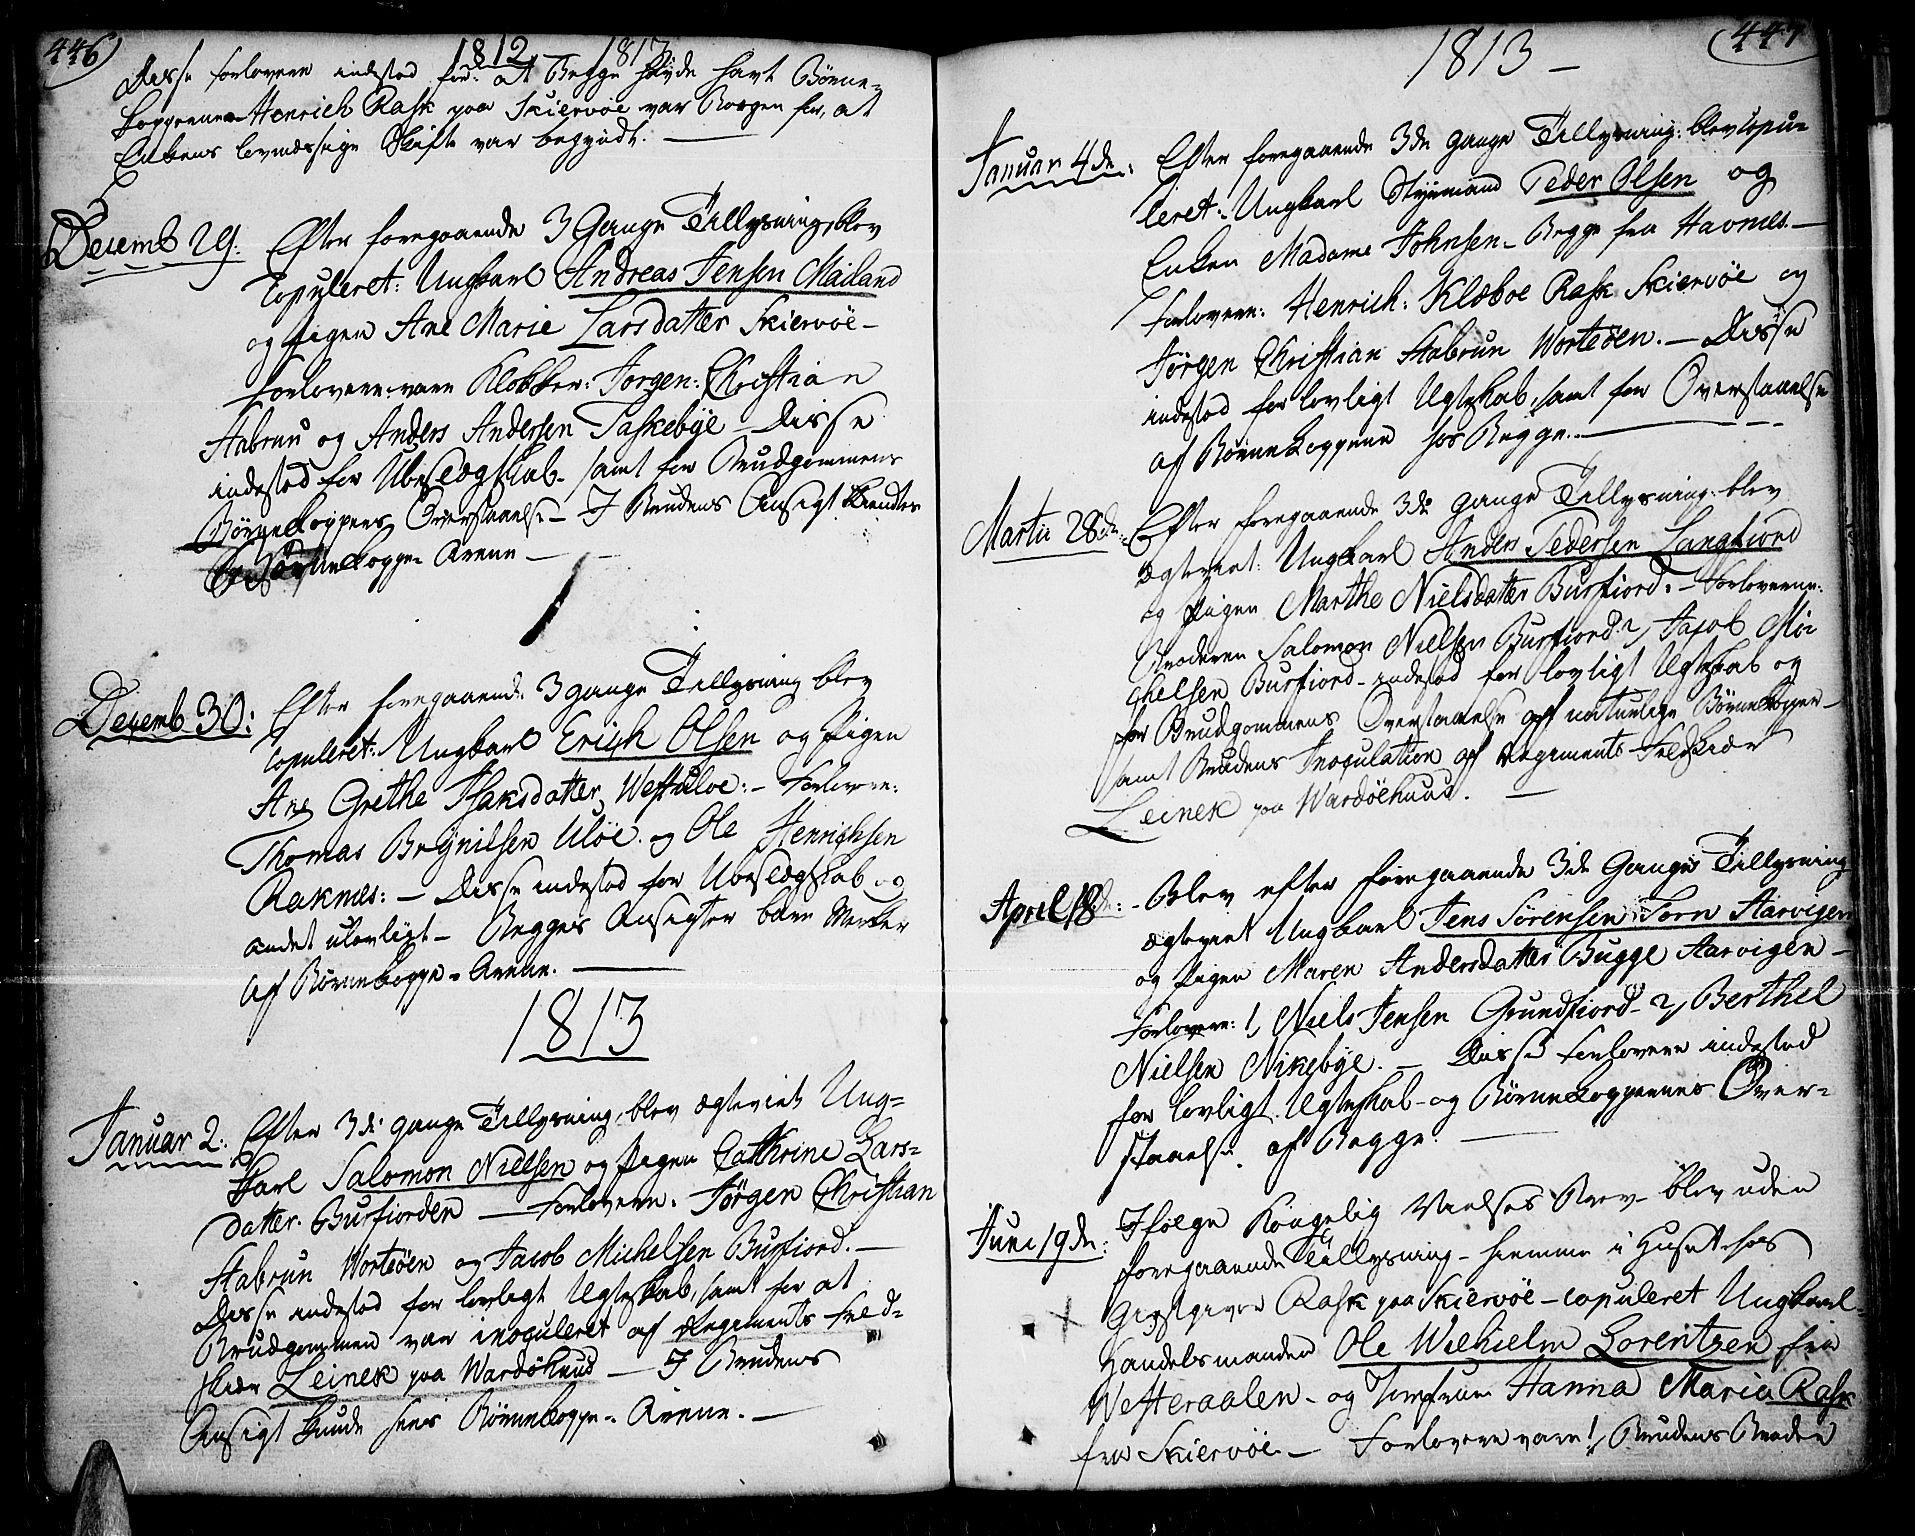 446)
1812 1813
Disse forlovere indestod for: at Begge havde havt Børne-
koppernes Henrich Rask paa Skiervøe var Borgen for, at
Enkens lovmæssige Skifte var begyndt.
Decemb 29. Efter foregaaende 3 Gange Tillysning, blev
Copuleret: Ungkarl Andreas Jensen Mailand
og Pigen Ane Marie Larsdatter Skiervøe -
Forlovere vare Klokker: Jørgen: Christian
Stabrun og Anders Andersen Taskebye - Disse
indestod for Ubeslægtskab - samt for Brudgommens
Børnekoppers Overstaaelse - I Brudens Ansigt kiendtes
Børnekoppe Arene -
Decemb 30: Efter foregaaende 3 gange Tillysning blev
Copuleret: Ungkarl Erich Olsen og Pigen
Ane Grethe Isaksdatter Westuløe: - Forlovere:
Thomas Brynilsen Uløe og Ole Henrichsen
Raknes: - Disse indestod for Ubeslægtskab og
andet ulovligt - Begges Ansigter bare Merker
af Børnekoppe-Arene. -
1813
Januar 2. Efter 3de gange Tillysning blev ægteviet Ung-
karl Salomon Nielsen og Pigen Cathrine Lars-
datter Burfiorden - Forlovere: Jørgen Christian
Stabrun Wortøen og Jacob Michelsen Burfiord. -
Disse indestod for lovligt Ægteskab, samt for at
Brudgommen var inoculeret af Regiments Feld-
skiær Leinek paa Wardøhuus - I Brudens
Ansigt kunde sees Børnekoppe-Arene. -
447
1813 -
Januar 4de: Efter foregaaende 3de gange Tillysning: blev Copu-
leret: Ungkarl Styrmand Peder Olsen og
Enken Madame Johnsen - Begge fra Havnnes. -
Forlovere: Henrich: Klæboe Rask Skiervøe og
Jørgen Christian Stabrun Wortøen. - Disse
indestod for lovligt Ægteskab, samt for Overstaaelse
af Børnekopperne hos Begge. -
Martii 28de: Efter foregaaende 3de gange Tillysning blev
ægteviet: Ungkarl Anders Pedersen Langfiord
og Pigen Marthe Nielsdatter Burfiord. - Forloverne:
Broderen Salomon Nielsen Burfiord 2, Jacob Mi-
chelsen Burfiord - indestod for lovligt Ægteskab og
for Brudgommens Overstaaelse af naturlige Børnekopper -
samt Brudens Inoculation af Regiments Feldskiær
Leinek paa Wardøehuus. -
April 18de: - Blev efter foregaaende 3de Gange Tillysning
ægteviet Ungkarl Jens Sørensen Torn Aarvigen
og Pigen Maren Andersdatter Bugge Aarvigen -
Forlovere: 1, Niels Jensen Grundfiord - 2, Berthel
Nielsen Nikebye. - Disse Forlovere indestod
for lovligt Ægteskab - og Børnekoppernes Over-
staaelse af Begge. -
Juni 19de: Ifølge Kongelig Vielses Brev - blev uden
foregaaende Tillysning - hiemme i Huset hos
Giestgiver Rask paa Skiervøe - copuleret Ungkarl
Handelsmanden Ole Wilhielm Lorentzen fra
Westeraalen - og Jomfrue Hanna Maria Rask
fra Skiervøe - Forlovere vare 1, Brudens Broder